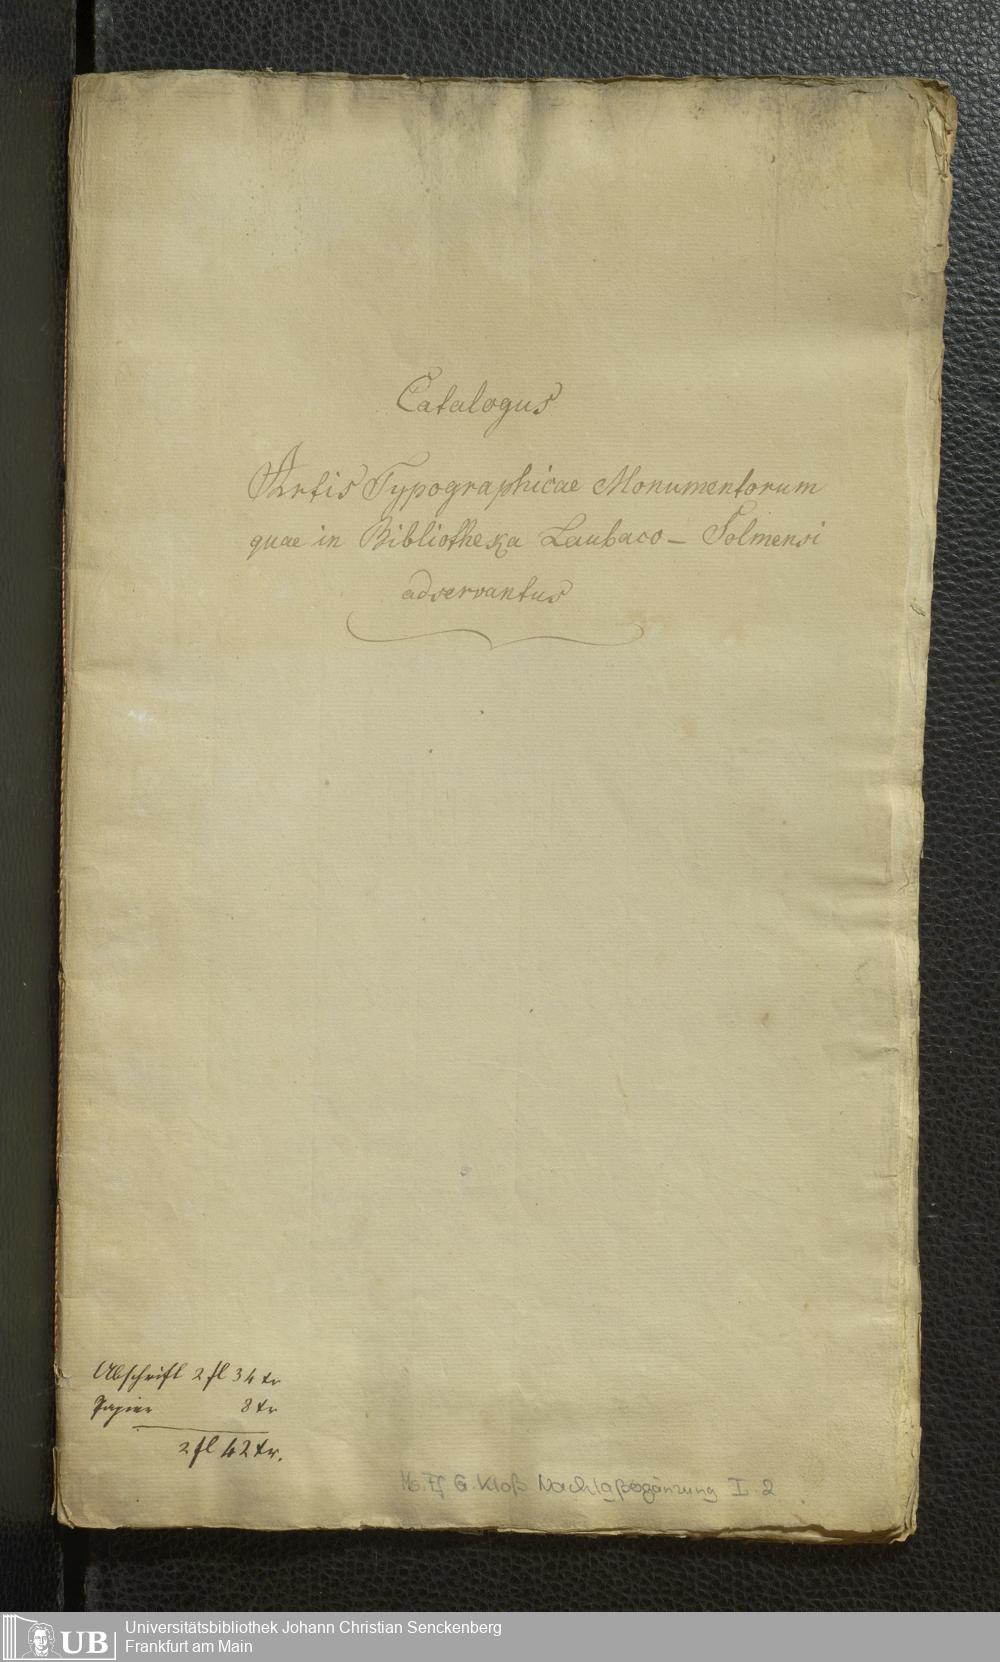 Catalogus
Artis Typographicae Monumentorum
quae in Bibliotheka Laubaco - Solmensi
adservantus
Abschrift 2 fl 34 xr
Papier 8 xr
2 fl 42 xr.
Ms. Ff G. Kloß Nachlaßergänzung I. 2
UB
Universitätsbibliothek Johann Christian Senckenberg
Frankfurt am Main